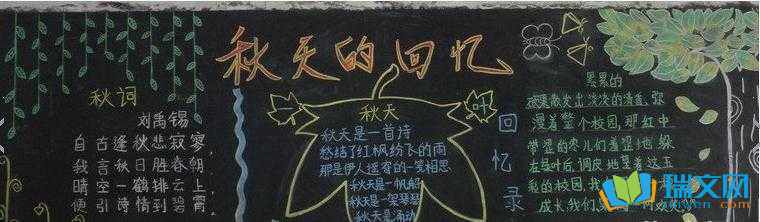 秋天的回忆
秋词
刘禹锡
自古逢秋悲寂寥
我言秋日胜春朝
晴空一鹤排云上
便引诗情到碧霄
秋天
秋天是一首诗
愁结了红枫纷飞的雨
那是伊人遥寄的一笺相思
秋天是一帆船
秋天是一架琴
秋天是涌动
叶
回忆录
累累的
散发出淡淡的清香,弥
漫着整个校园,那红中
带涩的枣儿们羞涩地躲
在绿叶后,调皮地望着这五
彩的校园
成长
瑞文网